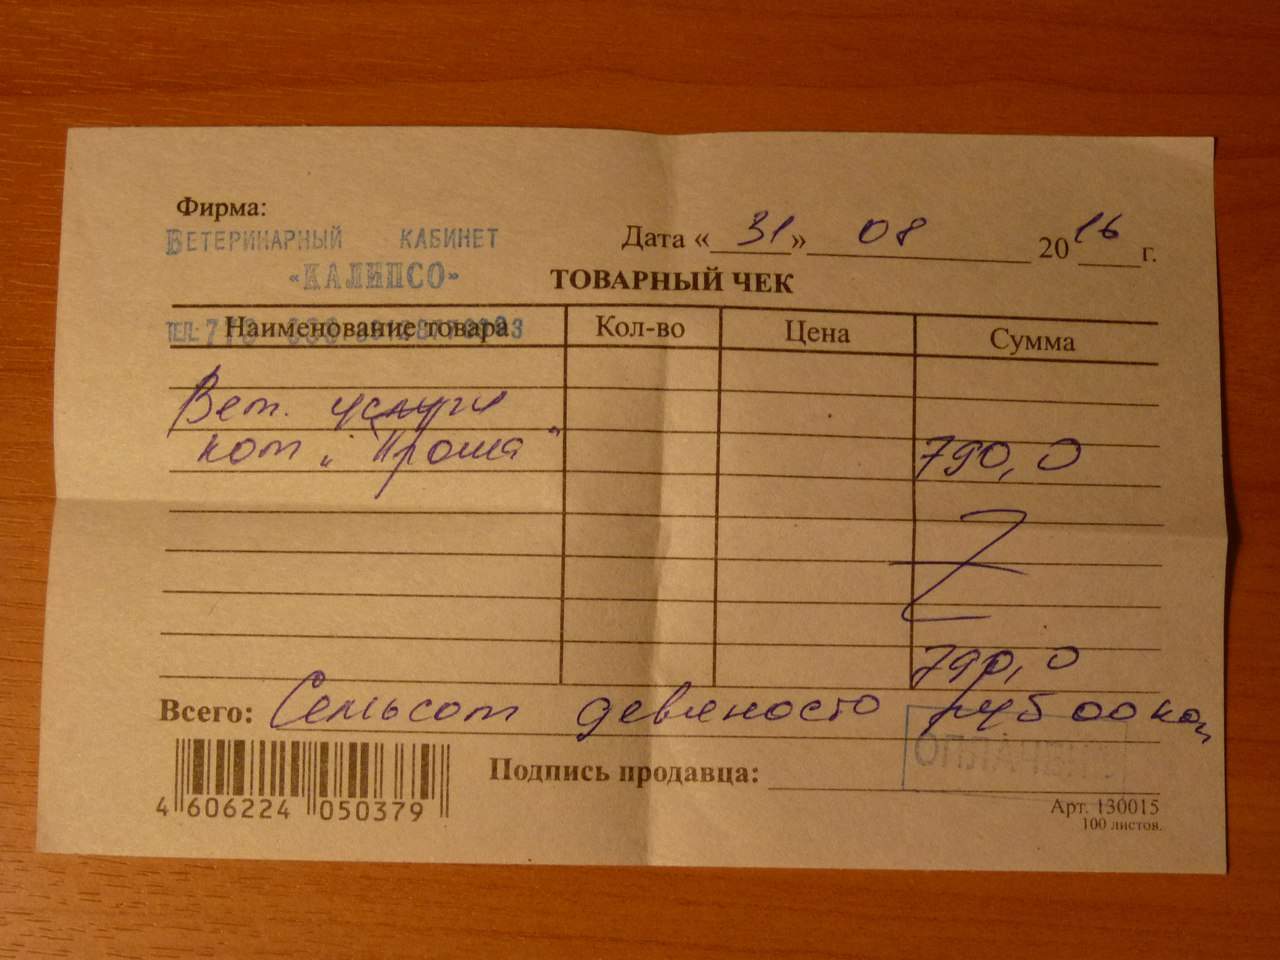 Фирма:
ВЕТЕРИНАРНЫЙ КАБИНЕТ
«КАЛИПСО»
Дата « 31 » 08 2016 г.
ТОВАРНЫЙ ЧЕК
ТЕЛ:
Наименование товара Кол-во Цена Сумма
Вет. услуги
кот „Проша“ 790,0
790,0
Всего: Семьсот девяносто руб 00 коп
ОПЛАЧЕНО
Подпись продавца:
4 606224 050379
Арт. 130015
100 листов.